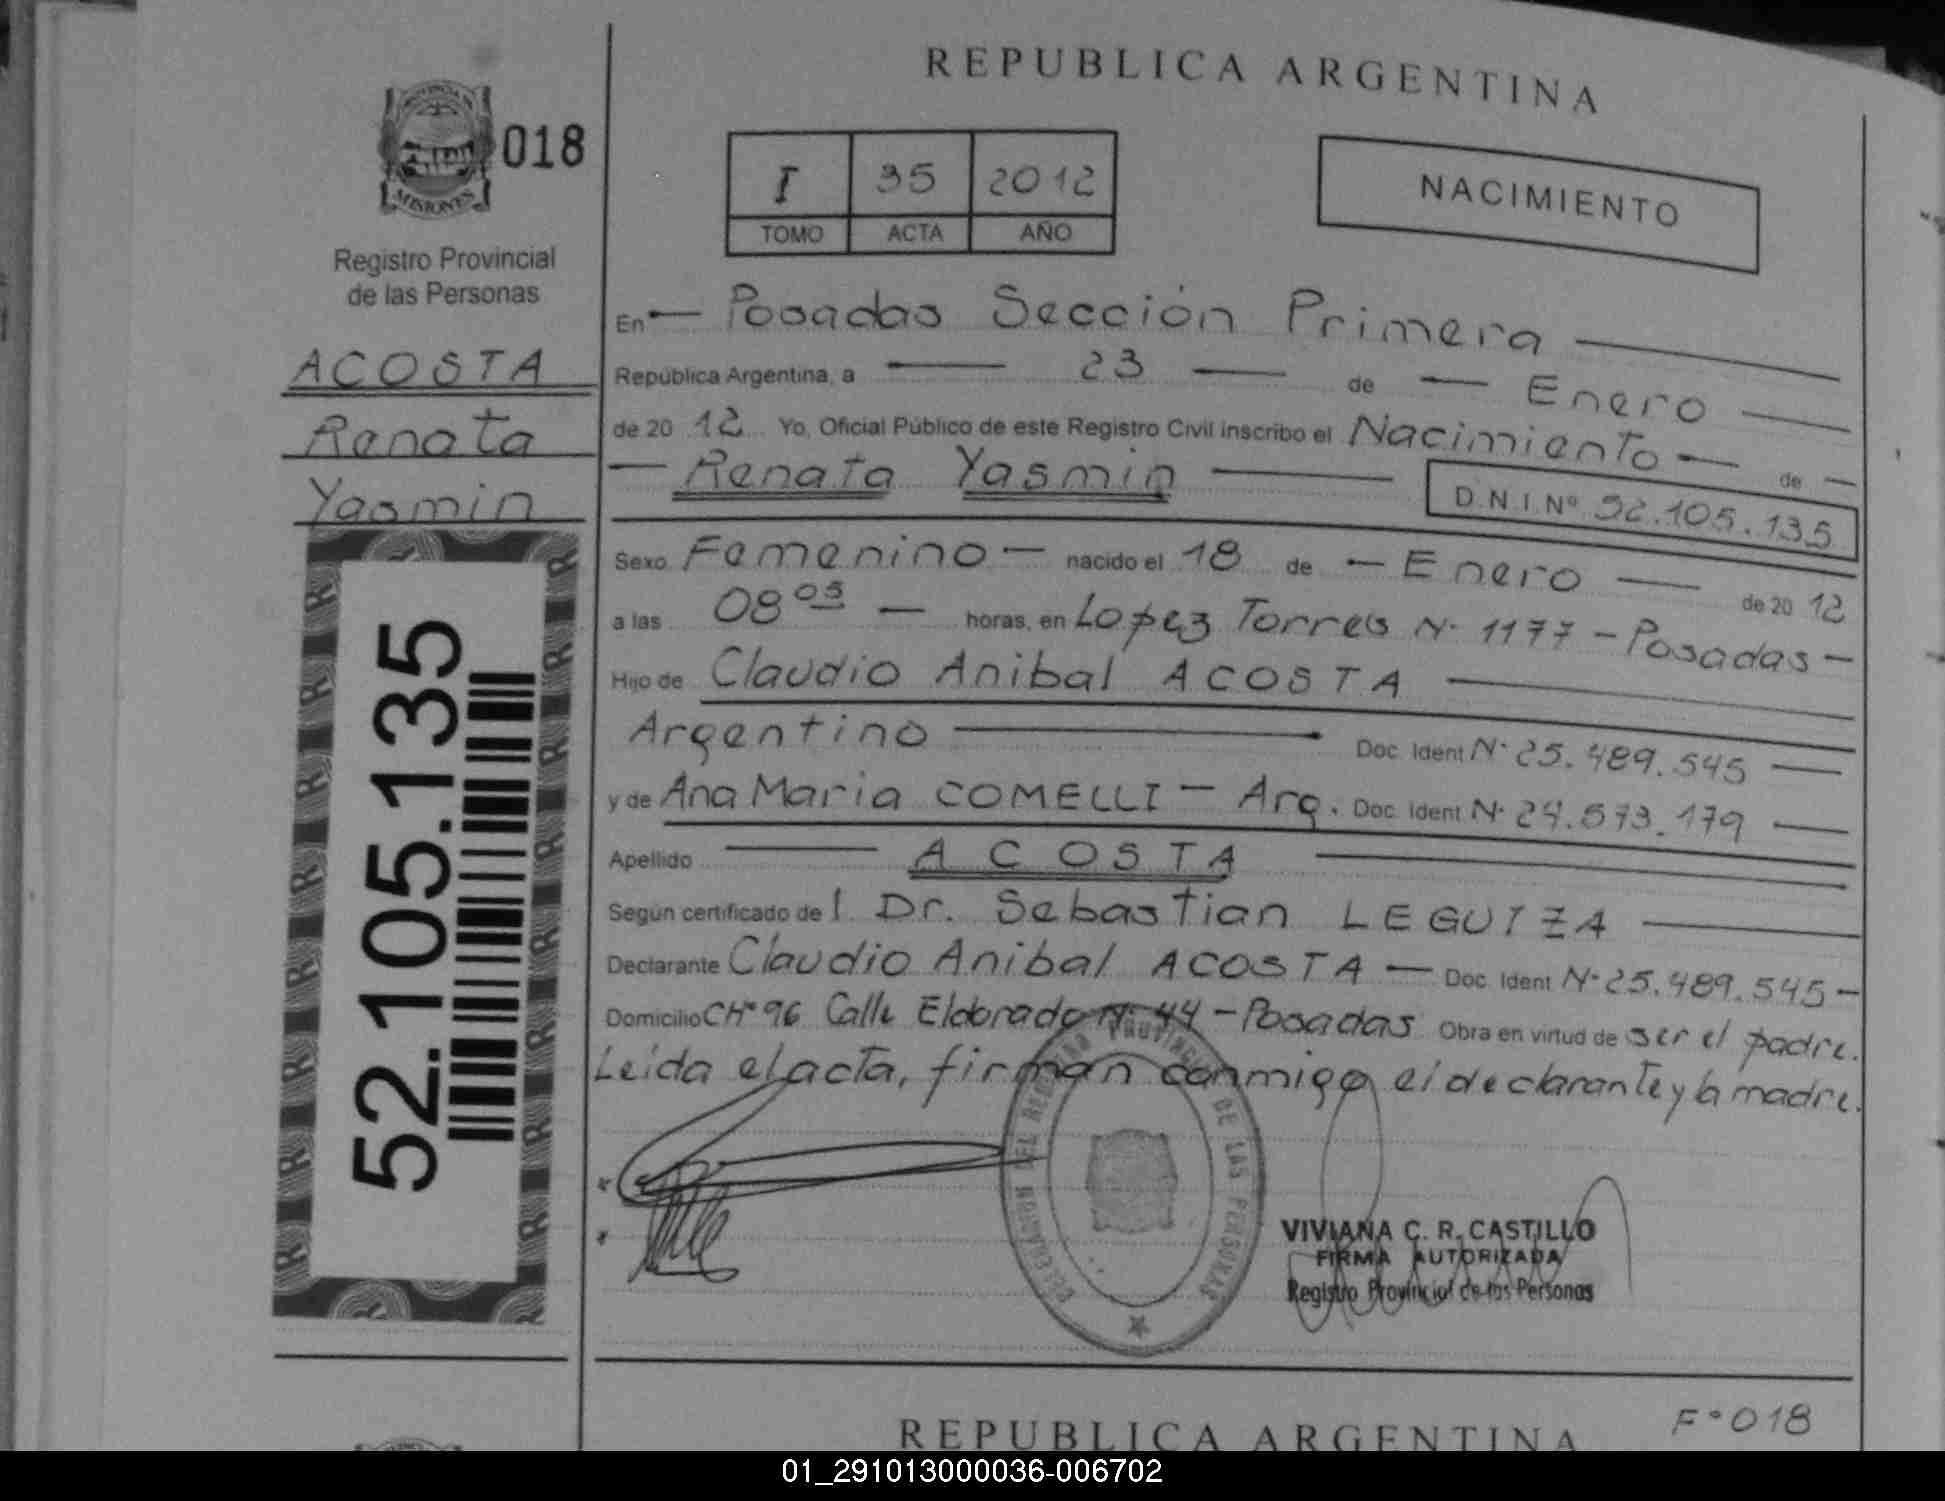 REPUBLICA ARGENTINA
MISIONES
018
Registro Provincial
de las Personas
ACOSTA
Renata
Yasmin
52.105.135
I 35 2012
TOMO ACTA AÑO
NACIMIENTO
En — Posadas Sección Primera —
República Argentina, a — 23 — de — Enero —
de 20 12 Yo, Oficial Público de este Registro Civil inscribo el Nacimiento — de —
— Renata Yasmin — D.N.I. Nº 52.105.135
Sexo Femenino — nacido el 18 de — Enero — de 20 12
a las 08 05 — horas, en Lopez Torres N· 1177 – Posadas –
Hijo de Claudio Anibal ACOSTA —
Argentino — Doc. Ident N· 25.489.545 —
y de Ana Maria COMELLI – Arg. Doc. Ident N· 24.573.179 —
Apellido — ACOSTA —
Según certificado de l Dr. Sebastian LEGUIZA —
Declarante Claudio Anibal ACOSTA — Doc. Ident N· 25.489.545 –
Domicilio CHº 96 Calle Eldorado Nº 44 – Posadas Obra en virtud de ser el padre.
Leída el acta, firman conmigo el declarante y la madre.
DELEGACION DEL REGISTRO PROVINCIAL DE LAS PERSONAS
VIVIANA C. R. CASTILLO
FIRMA AUTORIZADA
Registro Provincial de las Personas
Fº 018
REPUBLICA ARGENTINA
01_291013000036-006702